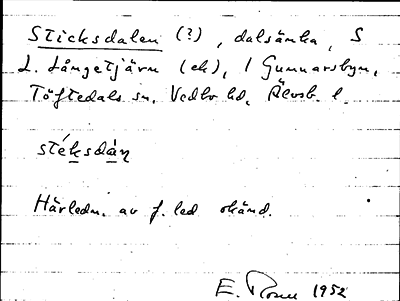 Sticksdalen (?), dalsänka, S
L. Långetjärn (ek), 1 Gunnarsbyn,
Töftedals sn, Vedbo hd, Älvsb. l.
stéksdàn
Härledn. av f. led okänd.
E. Rosen 1952